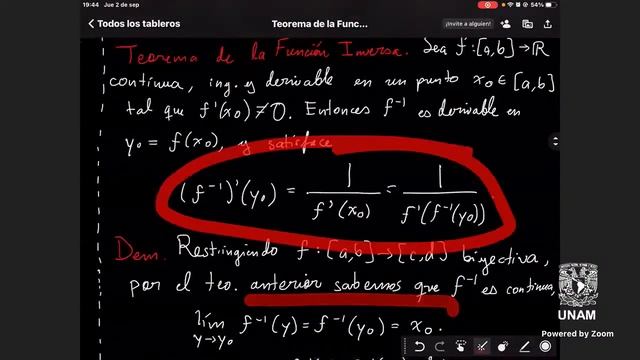 19:44 Jue 2 de sep 54%
Todos los tableros
Teorema de la Func...
¡Invite a alguien!
Teorema de la Función Inversa. Sea f:[a,b]→ℝ
continua, iny. y derivable en un punto x₀ ∈ [a,b]
tal que f'(x₀)≠0. Entonces f⁻¹ es derivable en
y₀ = f(x₀), y satisface
(f⁻¹)'(y₀) = 1/f'(x₀) = 1/f'(f⁻¹(y₀))
Dem. Restringiendo f:[a,b]→[c,d] biyectiva,
por el teo. anterior sabemos que f⁻¹ es continua,
lím y→y₀ f⁻¹(y) = f⁻¹(y₀) = x₀.
UNAM
Powered by Zoom